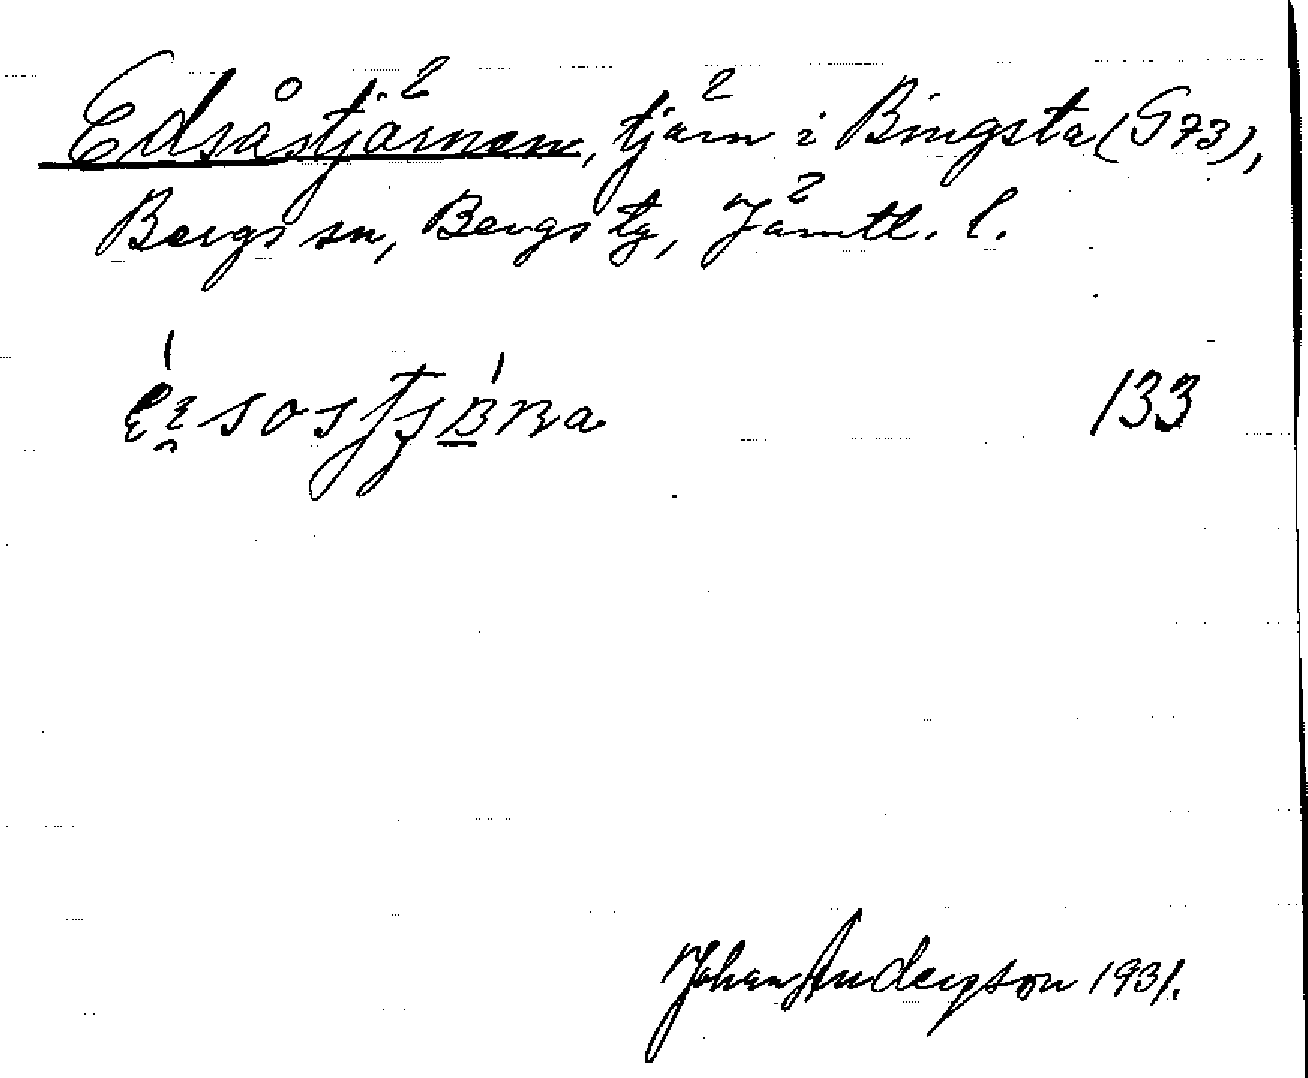 Edsåstjärnen, tjärn i Bingsta (G 73),
Bergs sn, Bergs tg, Jämtl. l.
133
Johan Anderson 1931.